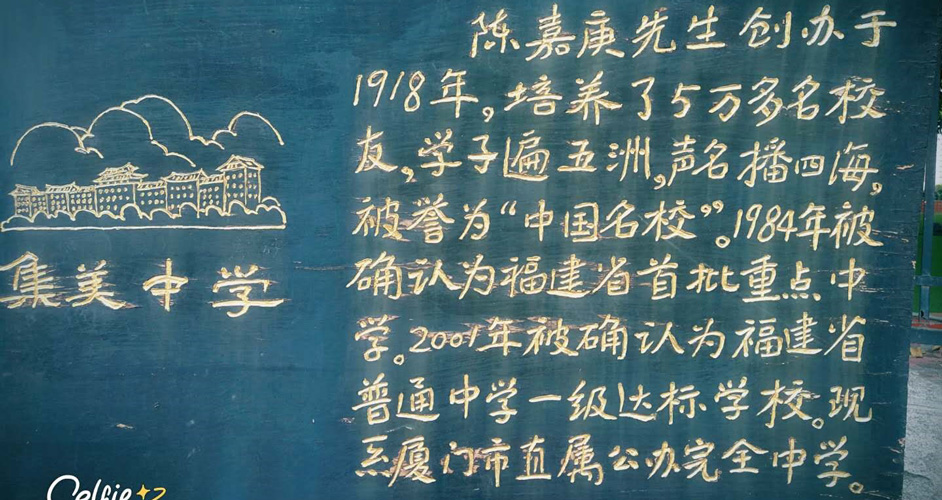 陈嘉庚先生创办于
1918年，培养了5万多名校
友，学子遍五洲，声名播四海，
被誉为“中国名校”。1984年被
确认为福建省首批重点中
学。2001年被确认为福建省
普通中学一级达标学校。现
系厦门市直属公办完全中学。
集美中学
Selfie